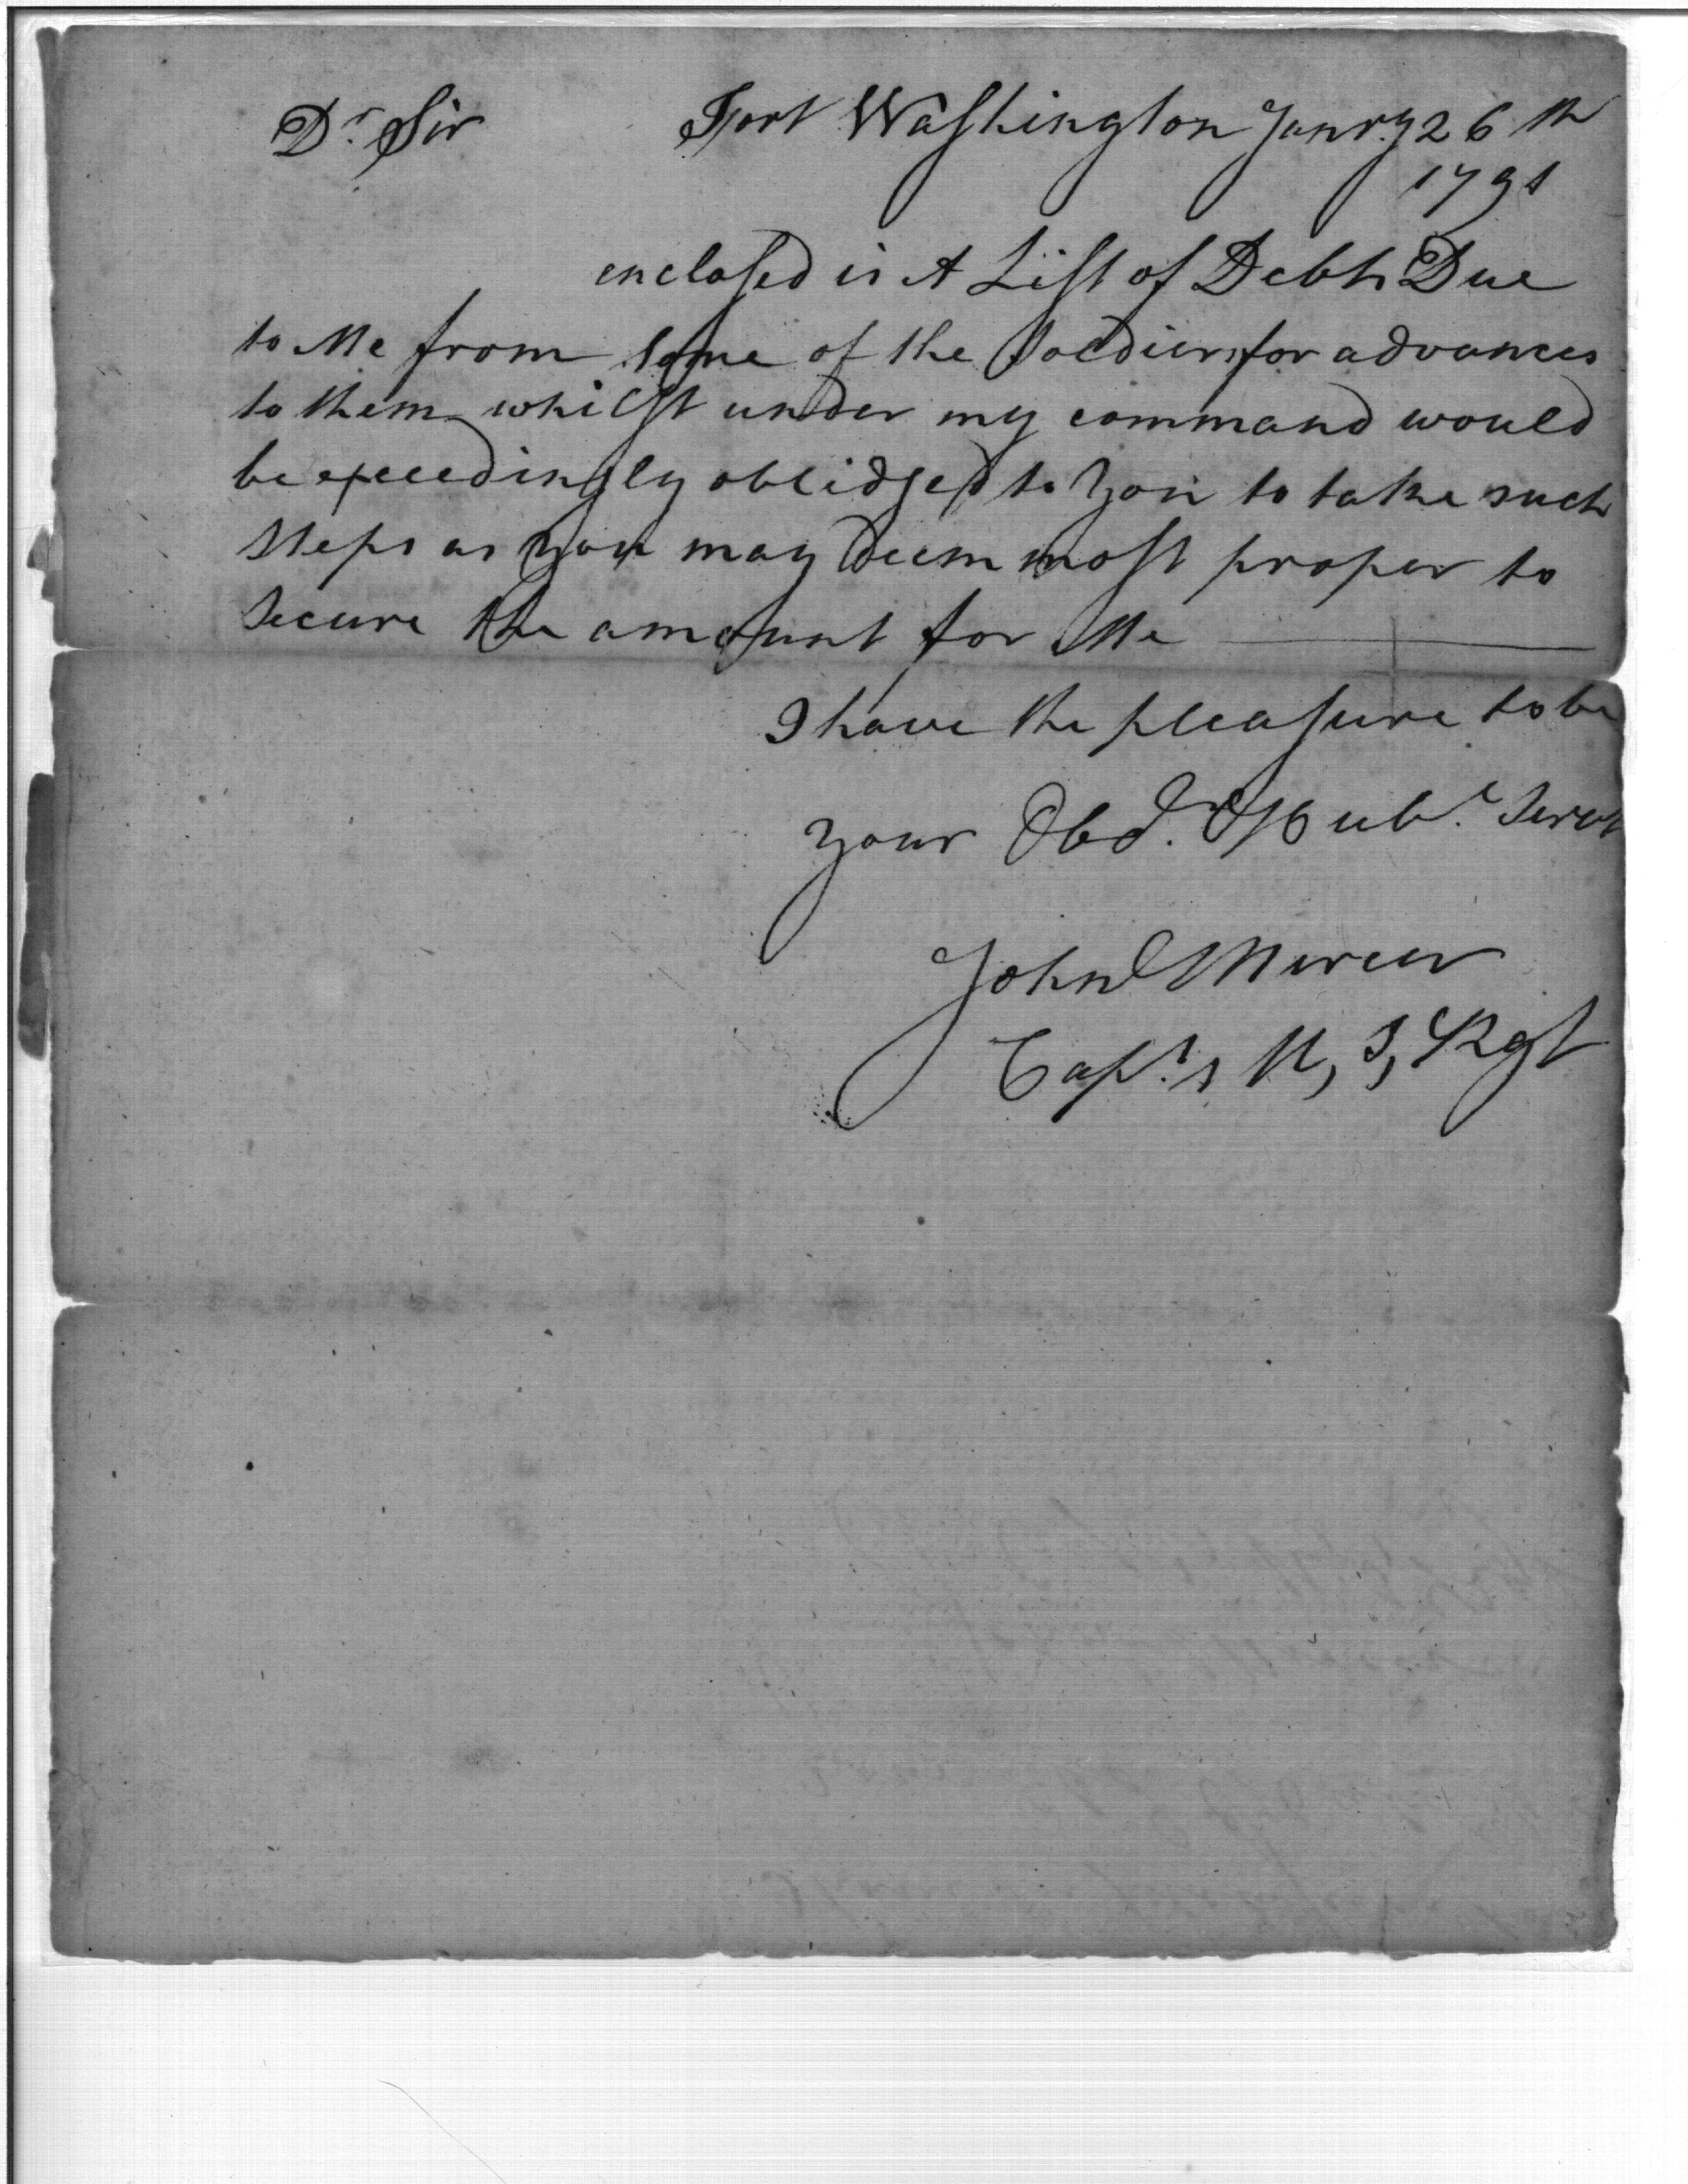 Dr. Sir Fort Washington Janry 26th
1791
enclosed is A List of Debts Due
to Me from some of the Soldiers for advances
to them whilst under my command would
be exceedingly oblidged to You to take such
steps as You may deem most proper to
secure the amount for Me
I have the pleasure to be
your Obd. & Hubl. Servt
John Mercer
Capt. 1 U, S, Rgt